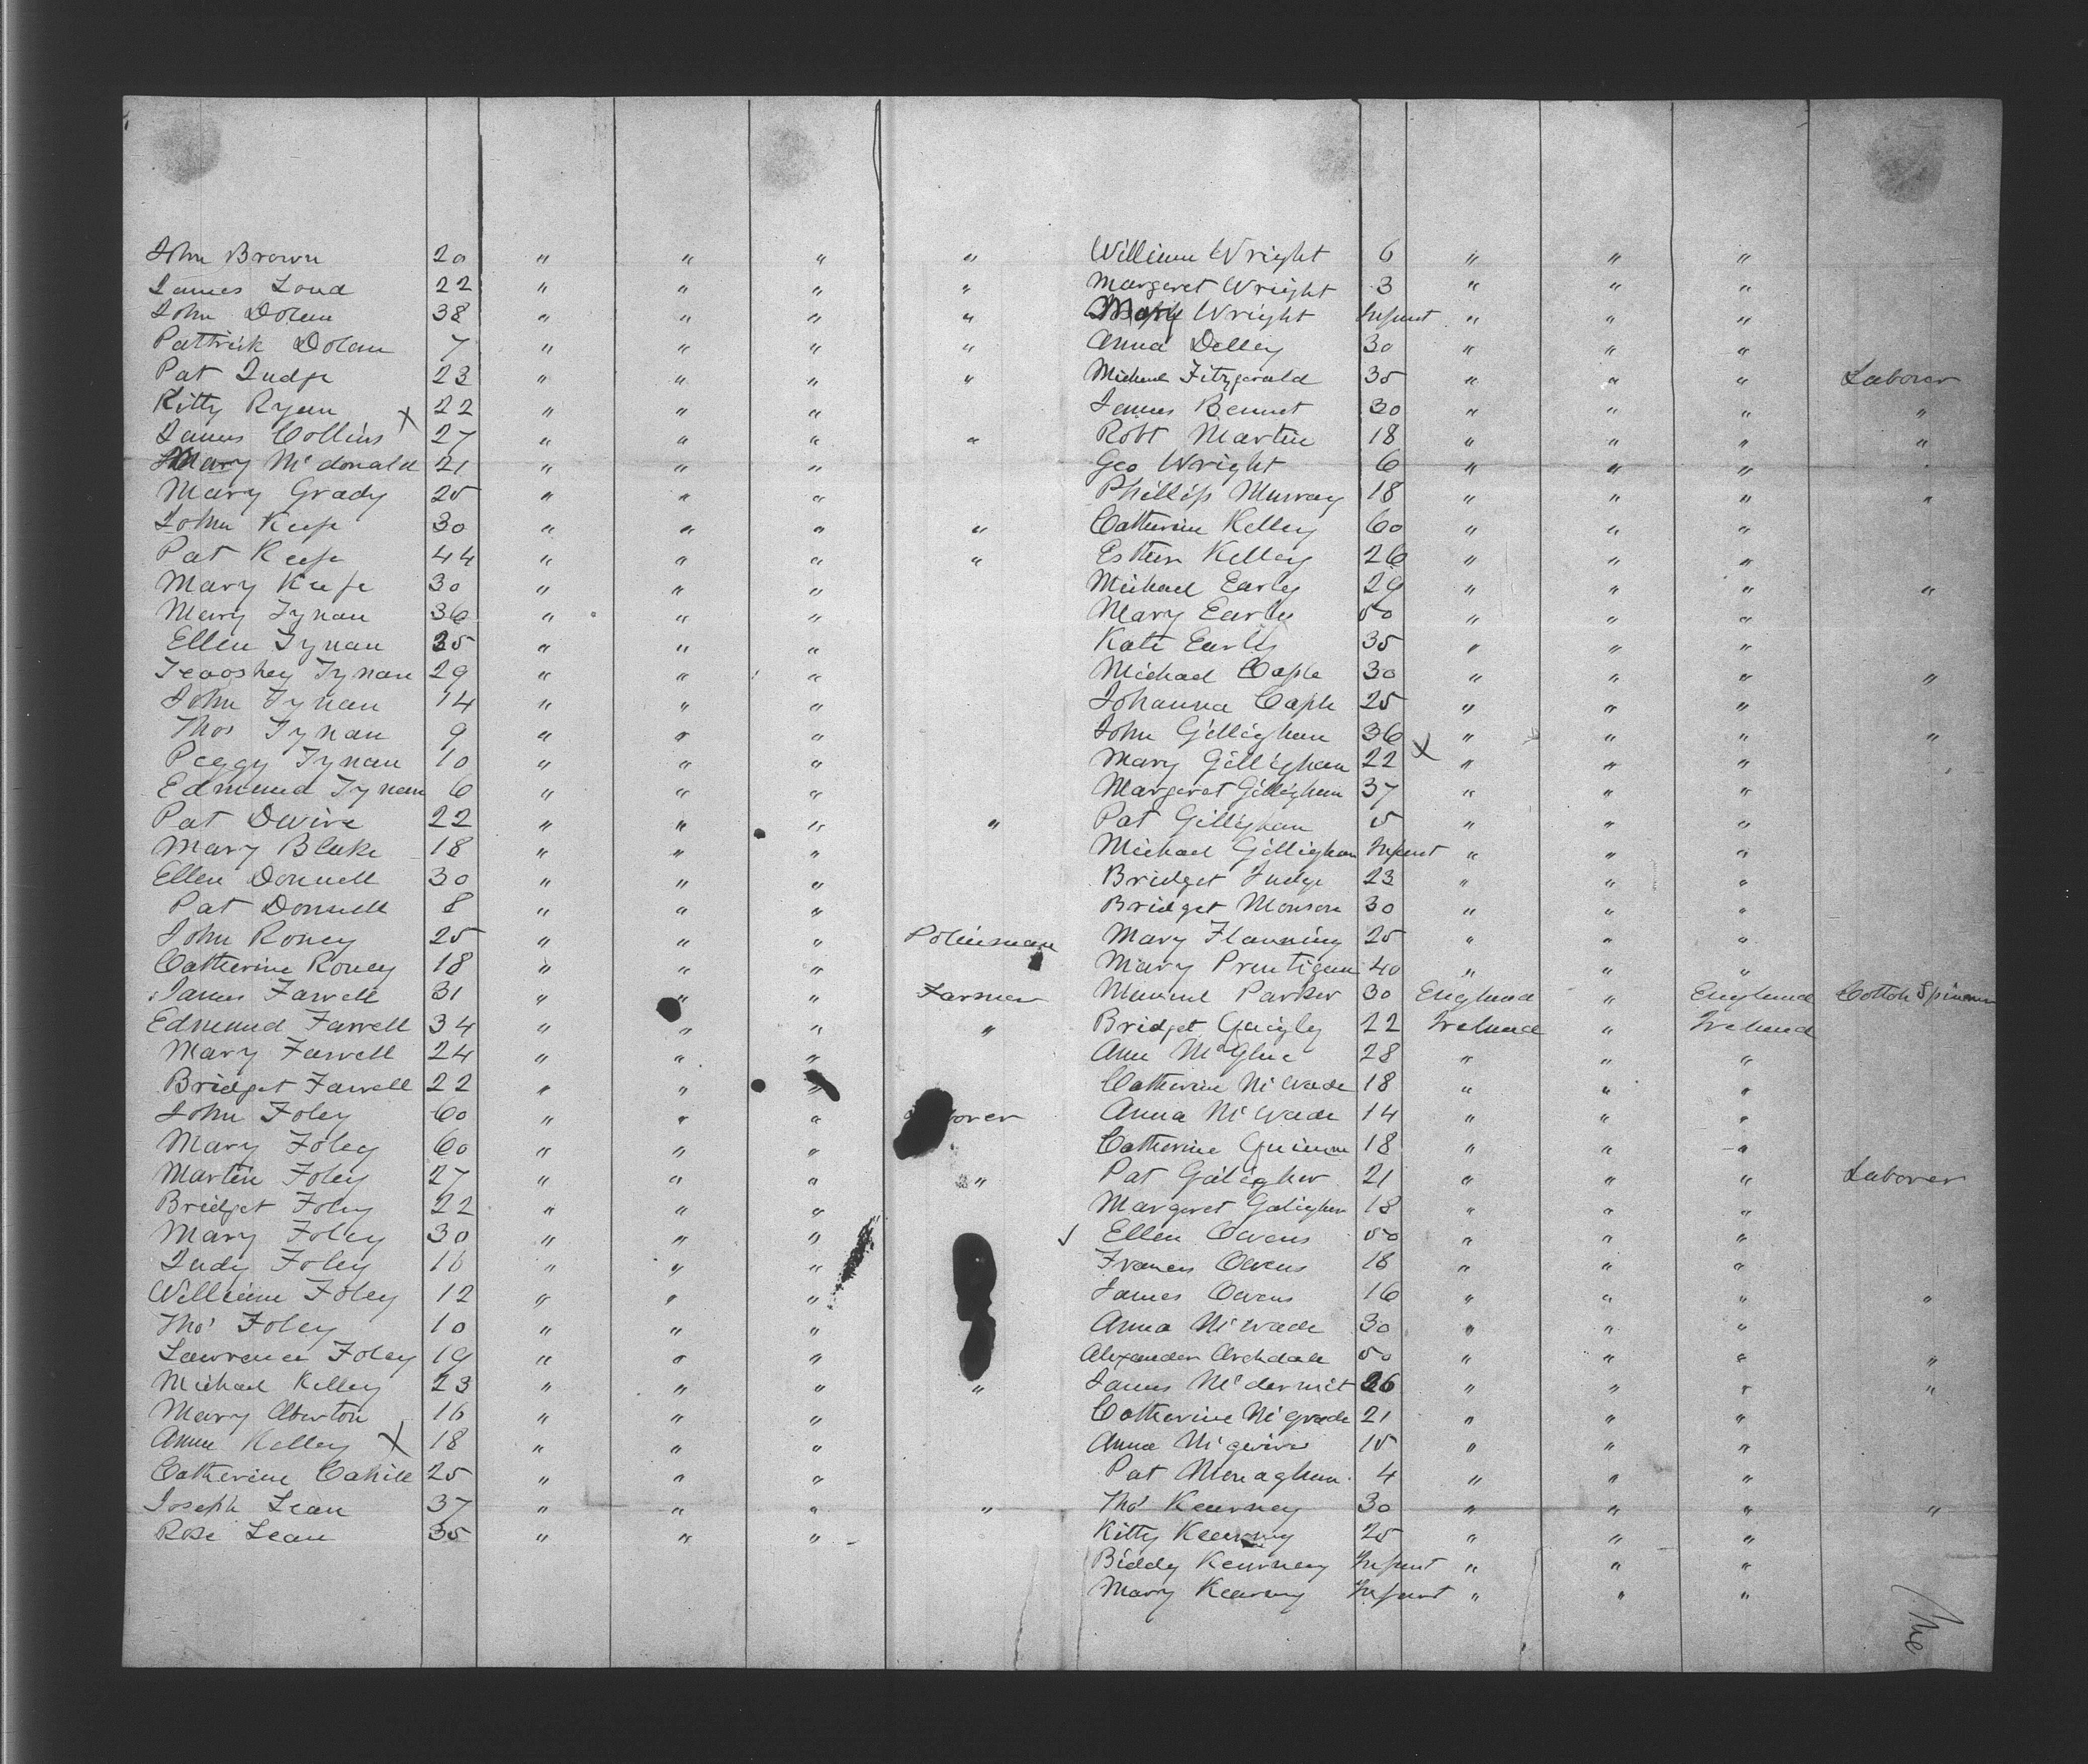 John Brown 20 " " " "
James Loud 22 " " " "
John Dolan 38 " " " "
Pattrick Dolan 7 " " " "
Pat Judge 23 " " " "
Kitty Ryan X 22 " " "
James Collins 27 " " " "
Mary McDonald 21 " " "
Mary Grady 25 " " "
John Keefe 30 " " " "
Pat Keefe 44 " " " "
Mary Keefe 30 " " "
Mary Tynan 36 " " "
Ellen Tynan 35 " " "
Tynan 29 " " "
John Tynan 14 " " "
Thos Tynan 9 " " "
Peggy Tynan 10 " " "
Edmund Tynan 6 " " "
Pat Dwire 22 " " " "
Mary Blake 18 " " "
Ellen Donnell 30 " " "
Pat Donnell 8 " " "
John Roney 25 " " " Polinsman
Catherine Roney 18 " " "
James Farrell 31 " " " Farmer
Edmund Farrell 34 " " " "
Mary Farrell 24 " " "
Bridget Farrell 22 " " "
John Foley 60 " " "
Mary Foley 60 " " "
Martin Foley 27 " " " "
Bridget Foley 22 " " "
Mary Foley 30 " " "
Judy Foley 16 " " "
William Foley 12 " " "
Thos Foley 10 " " "
Lawrence Foley 19 " " "
Michael Kelley 23 " " " "
Mary Aberton 16 " " "
Anne Kelley X 18 " " "
Catherine Cahill 25 " " "
Joseph Lean 37 " " " "
Rose Lean 35 " " "
William Wright 6 " " "
Margaret Wright 3 " " "
Mary Wright Infant " " "
Anna Delley 30 " " "
Michael Fitzgerald 35 " " " Laborer
James Bennet 30 " " " "
Robt Martin 18 " " " "
Geo Wright 6 " " "
Phillip Murray 18 " " " "
Catherine Kelley 60 " " "
Esther Kelley 26 " " "
Michael Early 29 " " " "
Mary Early 50 " " "
Kate Early 35 " " "
Michael Caple 30 " " " "
Johanna Caple 25 " " "
John Gillighan 36 " " " "
Mary Gillighan 22 X " " "
Margaret Gillighan 37 " " "
Pat Gillighan 5 " " "
Michael Gillighan Infant " " "
Bridget Judge 23 " " "
Bridget Monson 30 " " "
Mary Flanning 25 " " "
Mary 40 " " "
Parker 30 England " England Cotton Spinner
Bridget Quigly 22 Ireland " Ireland
Ann McGlue 28 " " "
Catherine McWade 18 " " "
Anna McWade 14 " " "
Catherine Quinn 18 " " "
Pat Galigher 21 " " " Laborer
Margaret Galigher 18 " " "
✓ Ellen Owens 50 " " "
Frances Owens 18 " " "
James Owens 16 " " " "
Anna McWade 30 " " "
Alexander Archdale 50 " " " "
James McDermit 26 " " " "
Catherine McGrade 21 " " "
Anna 15 " " "
Pat Monaghan 4 " " "
Thos Kearney 30 " " " "
Kitty Kearney 25 " " "
Biddy Kearney Infant " " "
Mary Kearney Infant " " "
The